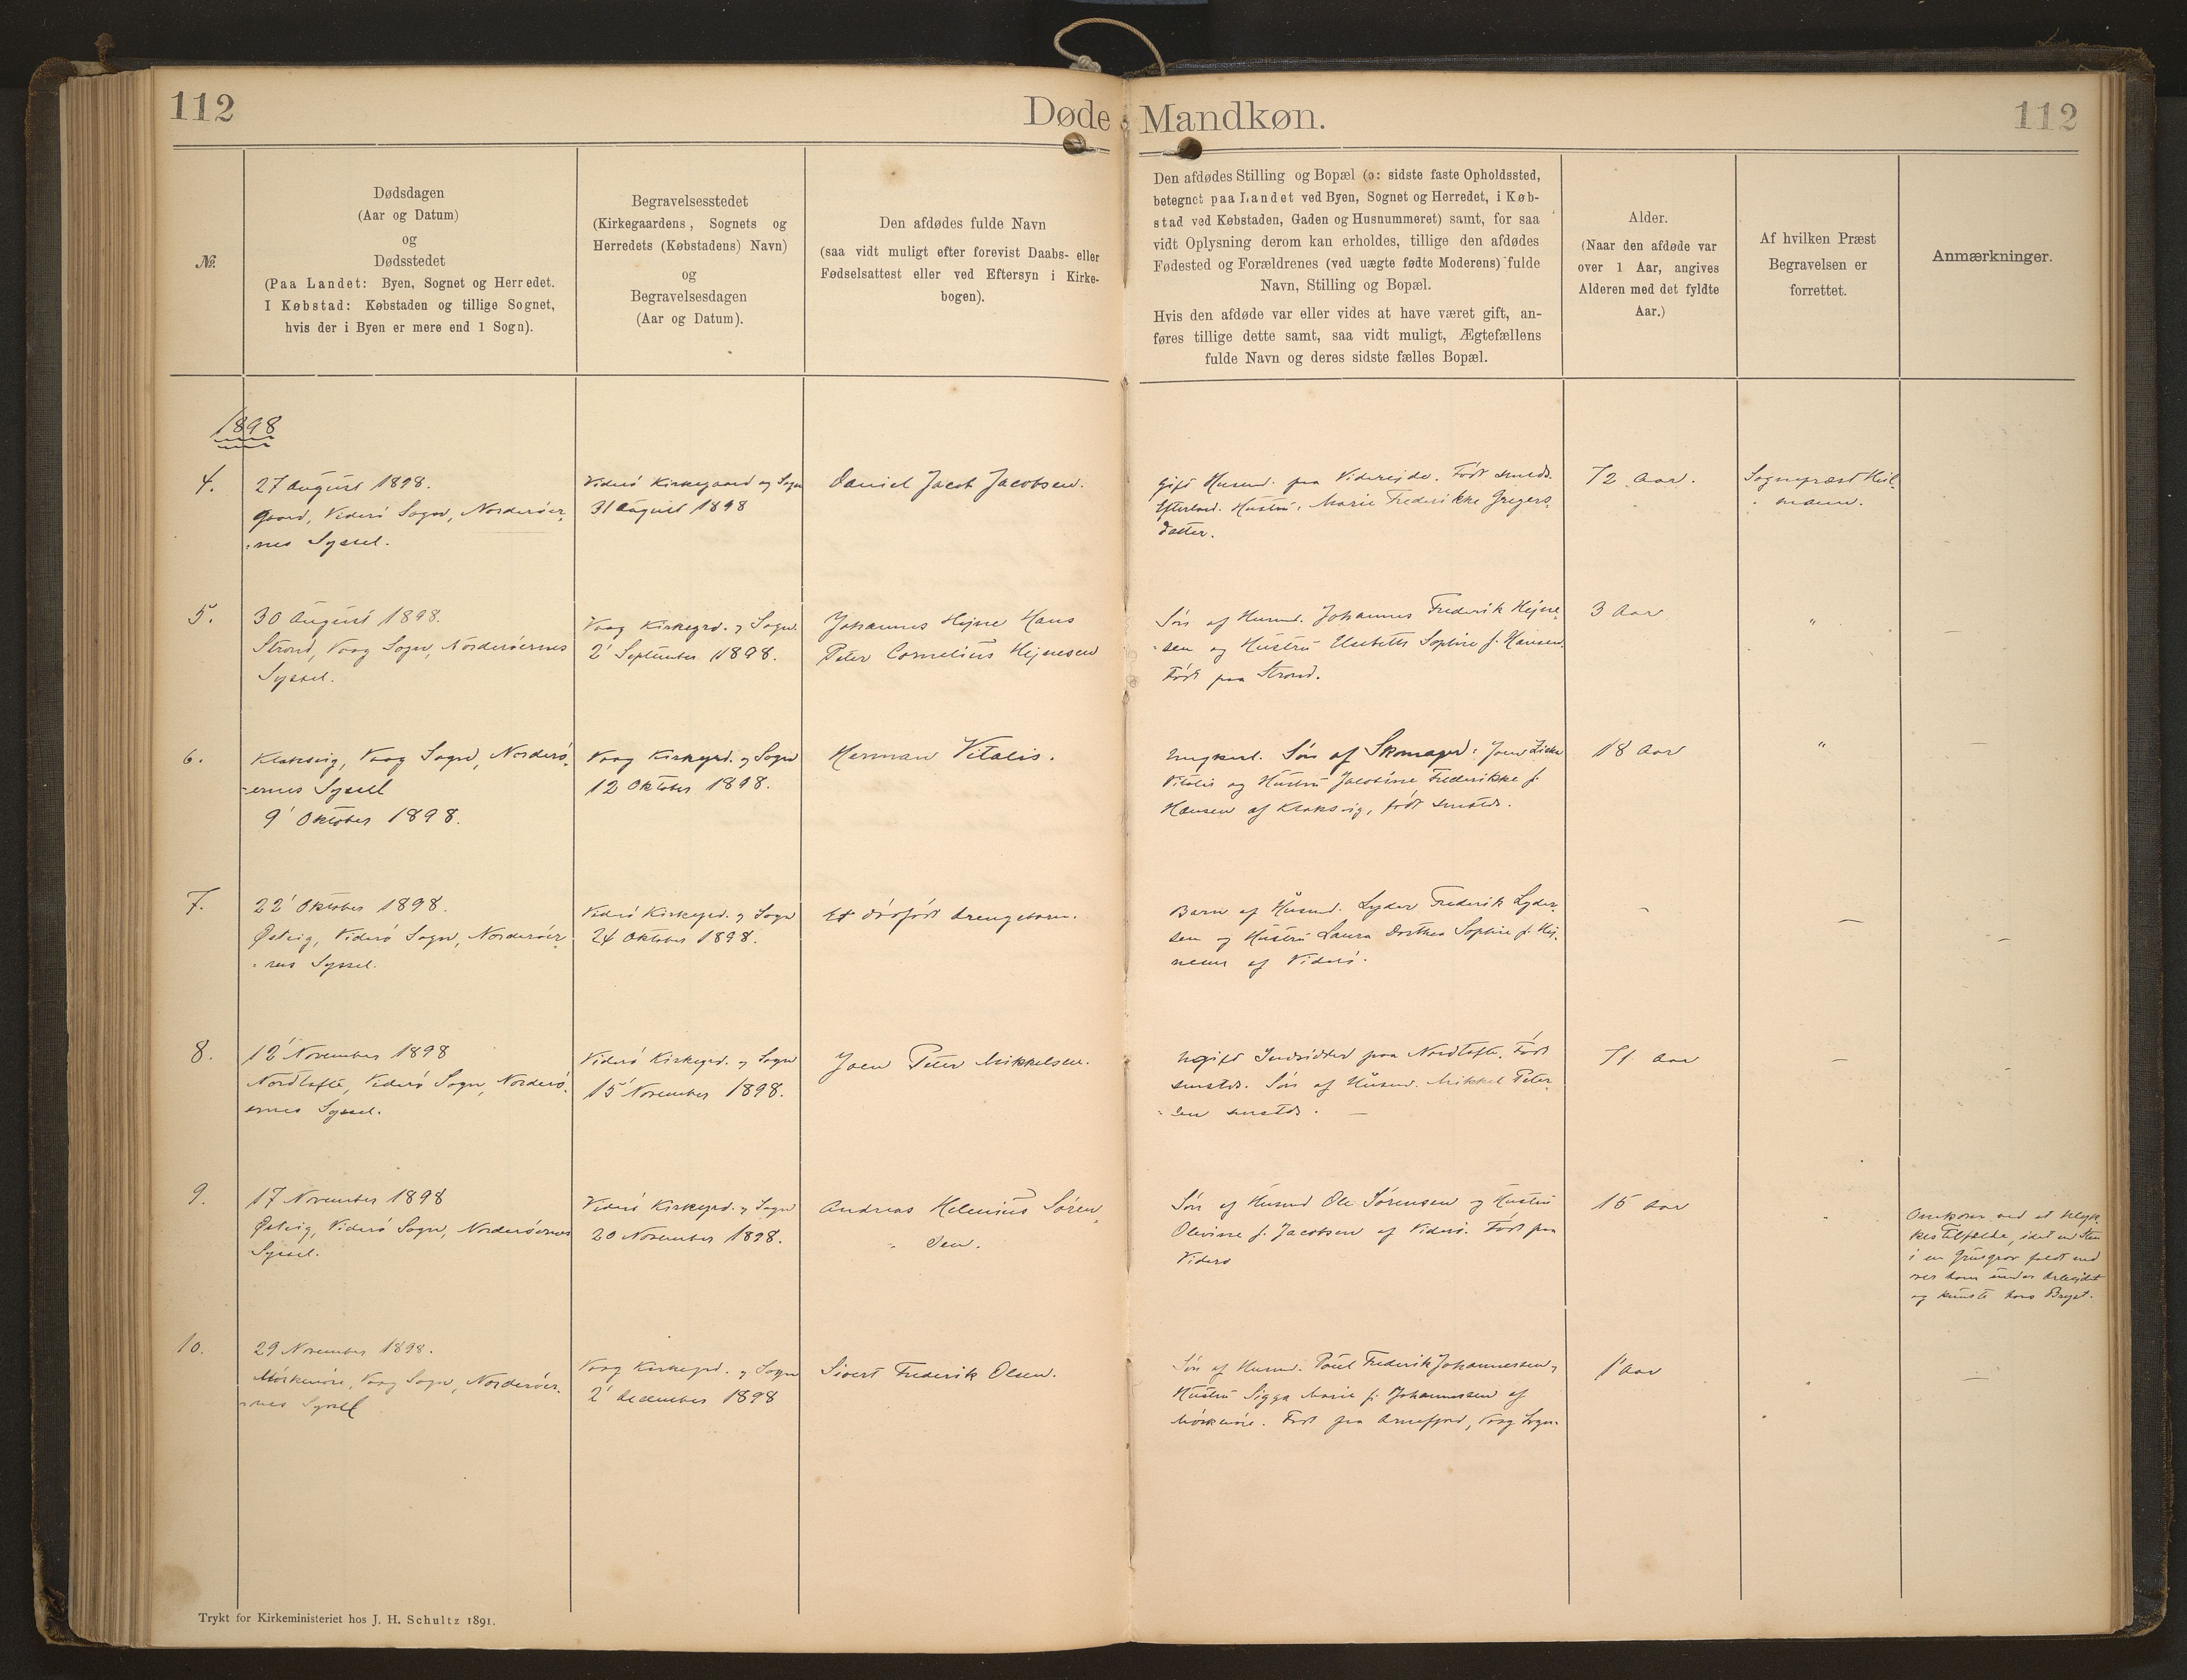 112
Døde
Mandkøn.
112
№.
Dødsdagen
(Aar og Datum)
og
Dødsstedet
(Paa Landet: Byen, Sognet og Herredet.
I Købstad: Købstaden og tillige Sognet,
hvis der i Byen er mere end 1 Sogn).
Begravelsesstedet
(Kirkegaardens, Sognets og
Herredets (Købstadens) Navn)
og
Begravelsesdagen
(Aar og Datum).
Den afdødes fulde Navn
(saa vidt muligt efter forevist Daabs- eller
Fødselsattest eller ved Eftersyn i Kirke-
bogen).
Den afdødes Stilling og Bopæl (ɔ: sidste faste Opholdssted,
betegnet paa Landet ved Byen, Sognet og Herredet, i Køb-
stad ved Købstaden, Gaden og Husnummeret) samt, for saa
vidt Oplysning derom kan erholdes, tillige den afdødes
Fødested og Forældrenes (ved uægte fødte Moderens) fulde
Navn, Stilling og Bopæl.
Hvis den afdøde var eller vides at have været gift, an-
føres tillige dette samt, saa vidt muligt, Ægtefællens
fulde Navn og deres sidste fælles Bopæl.
Alder.
(Naar den afdøde var
over 1 Aar, angives
Alderen med det fyldte
Aar.)
Af hvilken Præst
Begravelsen er
forrettet.
Anmærkninger.
1898
4.
27 August 1898.
Gaard, Viderö Sogn, Norderöer-
-nes Syssel.
Viderö Kirkegaard og Sogn
31 August 1898
Daniel Jacob Jacobsen.
Gift Husmd. paa Viderejde. Født smstds.
Efterlod. Hustru: Marie Frederikke Gregers-
datter.
72 Aar.
Sognepræst Heil-
-mann.
5.
30 August 1898.
Strond, Vaag Sogn, Norderöernes
Syssel.
Vaag Kirkegrd. og Sogn
2' September 1898.
Johannes Hejne Hans
Peter Cornelius Hejnesen
Søn af Husmd. Johannes Frederik Hejne-
-sen og Hustru Elsebeth Sophie f. Hansen.
Født paa Strond.
3 Aar
"
–
6.
Klaksvig, Vaag Sogn, Norderö-
-ernes Syssel
9' Oktober 1898.
Vaag Kirkegrd. og Sogn
12 Oktober 1898.
Herman Vitalis.
Ungkarl. Søn af Skomager: Joen
Vitalis og Hustru Jacobine Frederikke f.
Hansen af Klaksvig, født smstds.
18 Aar
"
–
7.
22' Oktober 1898.
Østvig, Viderö Sogn, Norderöer-
-nes Syssel.
Viderö Kirkegrd. og Sogn
24 Oktober 1898.
Et dödfödt Drengebarn.
Barn af Husmd. Lyder Frederik Lyder-
sen og Hustru Laura Dorthea Sophie f. Hej-
nesen af Viderö.
–
–
–
8.
12' November 1898
Nordtofte, Viderö Sogn, Norderö-
ernes Syssel.
Viderö Kirkegrd. og Sogn
15' November 1898.
Joen Peter Mikkelsen.
Ugift Indsidder paa Nordtofte. Født
smstds. Søn af Husmd. Mikkel Peter-
-sen smstds. –
71 Aar
–
9.
17 November 1898
Østvig, Viderö Sogn, Norderöernes
Syssel.
Viderö Kirkegrd. og Sogn
20 November 1898.
Andreas Helenius Sören-
- sen.
Søn af Husmd Ole Sørensen og Hustru
Olevine f. Jacobsen af Viderö. Født paa
Viderö
15 Aar
Omkom ved et Ulyk-
kestilfælde, idet en Sten
i en Grusgrav faldt ned
over ham under Arbejdet
og knuste hans Bryst.
10.
29 November 1898.
Mörkenöre, Vaag Sogn, Norderöer-
-nes Syssel
Vaag Kirkegrd. og Sogn
2' December 1898
Sivert Frederik Olsen.
Søn af Husmd. Poul Frederik Johannessen og
Hustru Sigga Marie f. Johannessen af
Mörkenöre. Født paa Arnefjord, Vaag Sogn.
1 Aar
–
Trykt for Kirkeministeriet hos J. H. Schultz 1891.